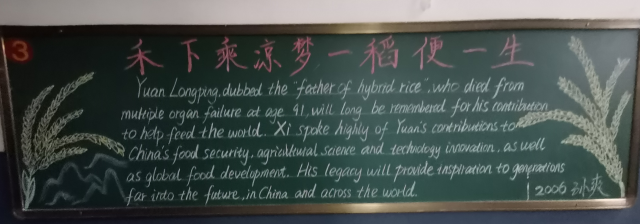 3
禾下乘凉梦一稻便一生
Yuan Longping, dubbed the "father of hybrid rice", who died from
multiple organ failure at age 91, will long be remembered for his contribution
to help feed the world. Xi spoke highly of Yuan's contributions to
China's food security, agricultural science and technology innovation, as well
as global food development. His legacy will provide inspiration to generations
far into the future, in China and across the world.
2006 孙爽